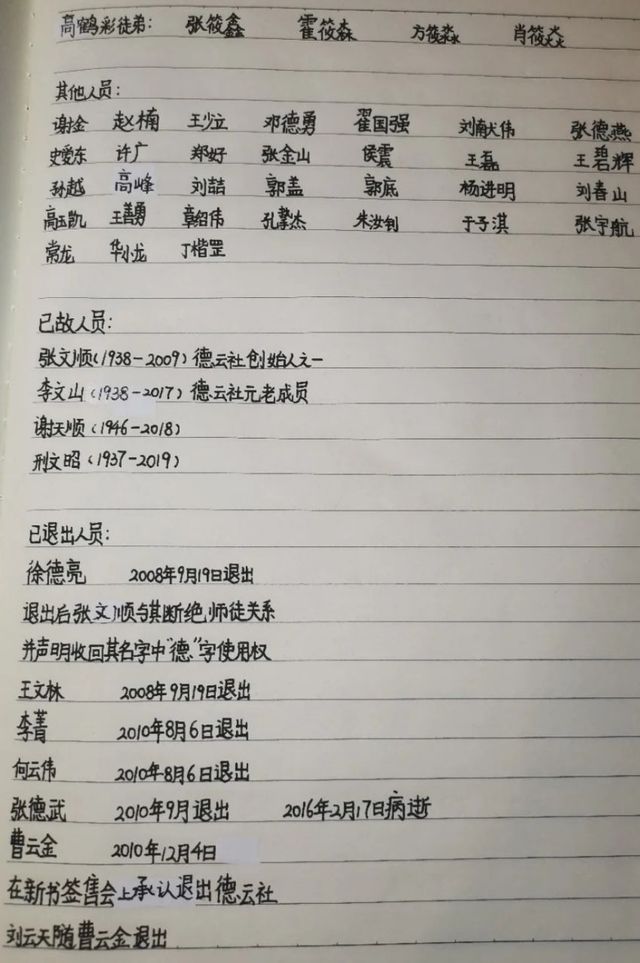 高鹤彩徒弟: 张筱鑫 霍筱森 方筱淼 肖筱焱
其他人员:
谢金 赵楠 王少立 邓德勇 翟国强 刘献伟 张德燕
史爱东 许广 郑好 张金山 侯震 王磊 王碧辉
孙越 高峰 刘喆 郭盖 郭底 杨进明 刘春山
高玉凯 王善勇 章绍伟 孔挚杰 朱汝钊 于子淇 张宇航
常龙 华小龙 丁楷罡
已故人员:
张文顺(1938-2009)德云社创始人之一
李文山(1938-2017)德云社元老成员
谢天顺(1946-2018)
刑文昭(1937-2019)
已退出人员:
徐德亮 2008年9月19日退出
退出后张文顺与其断绝师徒关系
并声明收回其名字中"德"字使用权
王文林 2008年9月19日退出
李菁 2010年8月6日退出
何云伟 2010年8月6日退出
张德武 2010年9月退出 2016年2月17日病逝
曹云金 2010年12月4日
在新书签售会上承认退出德云社
刘云天随曹云金退出